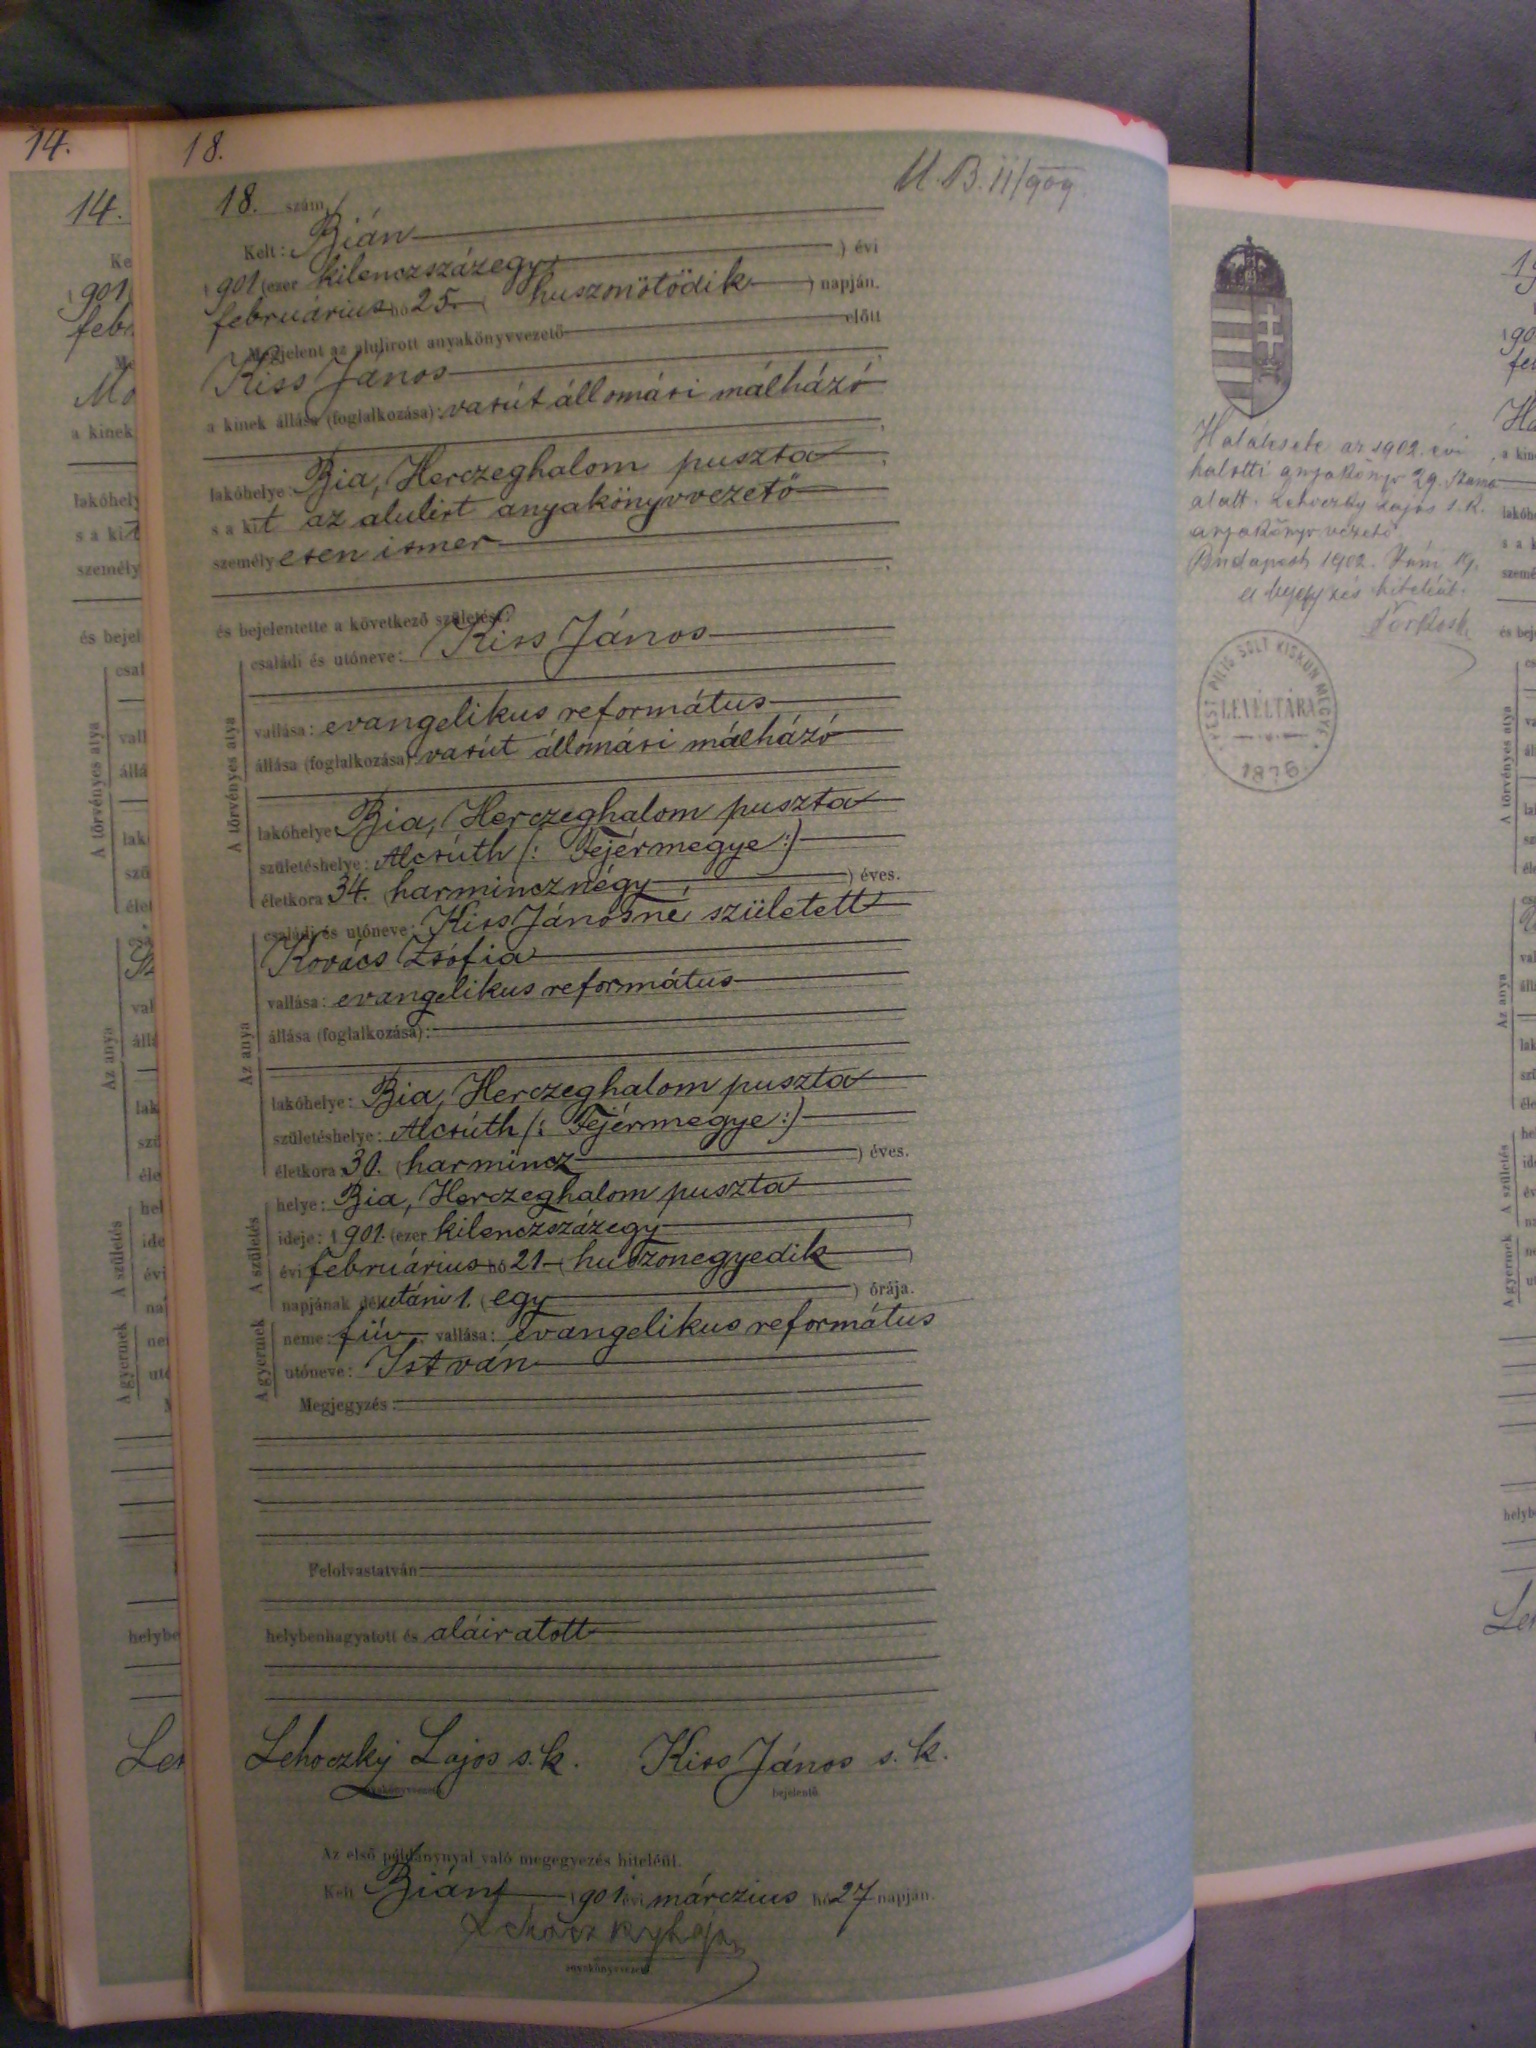 14.
18.
U. B. 11/909.
18. szám.
Kelt: Bián
1901 (ezer kilenczszázegy) évi
februárius hó 25. (huszonötödik) napján.
Megjelent az alulirott anyakönyvvezető előtt
Kiss János
a kinek állása (foglalkozása): vasút állomási málházó
lakóhelye: Bia, Herczeghalom puszta
s a kit az alulirt anyakönyvvezető
személyesen ismer
és bejelentette a következő születést:
A törvényes atya
családi és utóneve: Kiss János
vallása: evangelikus református
állása (foglalkozása): vasút állomási málházó
lakóhelye: Bia, Herczeghalom puszta
születéshelye: Alcsúth (: Fejérmegye :)
életkora: 34. (harmincznégy) éves.
Az anya
családi és utóneve: Kiss Jánosné született
Kovács Zsófia
vallása: evangelikus református
állása (foglalkozása):
lakóhelye: Bia, Herczeghalom puszta
születéshelye: Alcsúth (: Fejérmegye :)
életkora: 30. (harmincz) éves.
A születés
helye: Bia, Herczeghalom puszta
ideje: 1901. (ezer kilenczszázegy)
évi februárius hó 21 (huszonegyedik)
napjának délutáni 1. (egy) órája.
A gyermek
neme: fiú vallása: evangelikus református
utóneve: István
Megjegyzés:
Felolvastatván
helybenhagyatott és aláiratott
Lehoczky Lajos s. k. Kiss János s. k.
anyakönyvvezető bejelentő
Az első példánynyal való megegyezés hiteléül.
Kelt Bián, 1901 évi márczius hó 27 napján.
Lehoczky Lajos
anyakönyvvezető
Halálesete az 1902. évi
halotti anyakönyv 29. száma
alatt. Lehoczky Lajos s. k.
anyakönyvvezető.
Budapest 1902.
a bejegyzés hiteléül.
PEST PILIS SOLT KISKUN MEGYE
LEVÉLTÁRA
1876